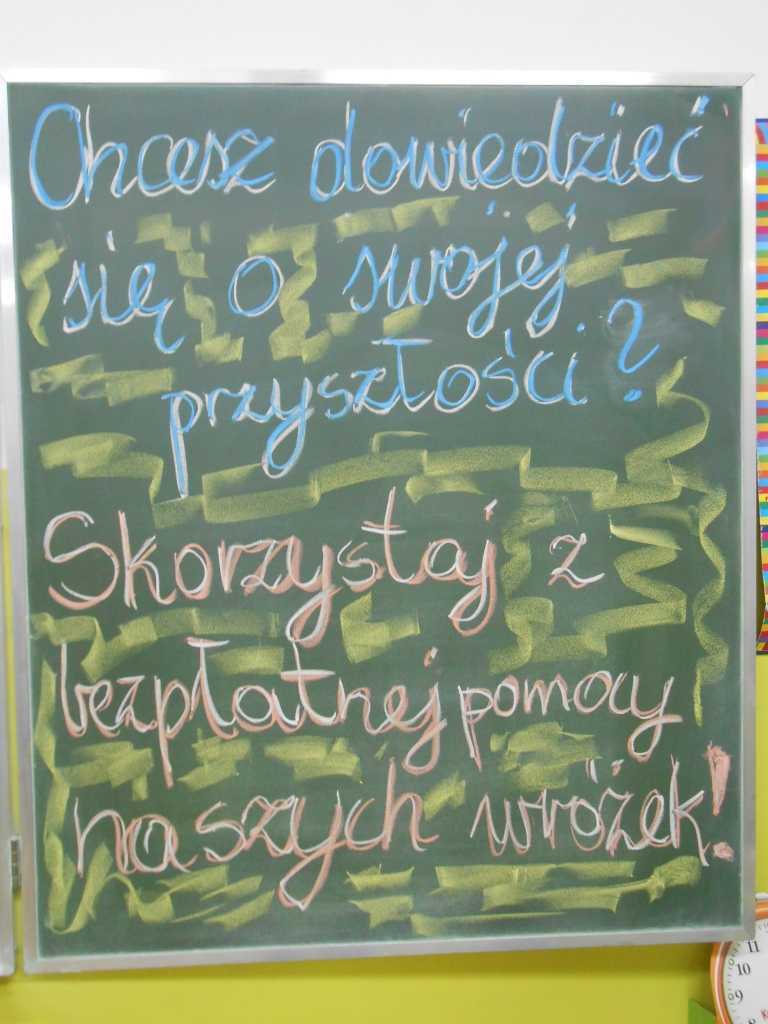 Chcesz dowiedzieć
się o swojej
przyszłości?
Skorzystaj z
bezpłatnej pomocy
naszych wróżek!
11
10
9
8